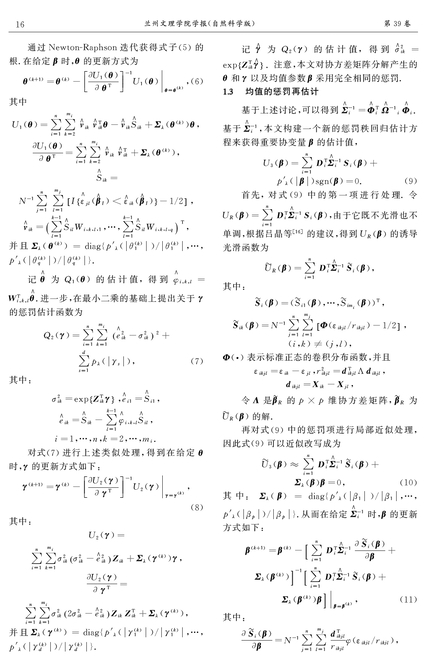 16
兰州文理学院学报(自然科学版)
第 39 卷
通过 Newton-Raphson 迭代获得式子(5) 的
根. 在给定 β 时, θ 的更新方式为
θ^(k+1) = θ^(k) − [∂U₁(θ)/∂θᵀ]⁻¹ U₁(θ)|θ=θ^(k), (6)
其中
U₁(θ) = ∑ᵢ₌₁ⁿ ∑ₖ₌₂^mᵢ v̂ᵢₖ v̂ᵢₖᵀθ − v̂ᵢₖŜᵢₖ + Σλ(θ^(k))θ,
∂U₁(θ)/∂θᵀ = ∑ᵢ₌₁ⁿ ∑ₖ₌₂^mᵢ v̂ᵢₖ v̂ᵢₖᵀ + Σλ(θ^(k)),
Ŝᵢₖ =
N⁻¹ ∑ⱼ₌₁ⁿ ∑ₗ₌₁^mⱼ [I{ε̂ⱼₗ(β̂ᵢ) < ε̂ᵢₖ(β̂ᵢ)} − 1/2],
v̂ᵢₖ = (∑ₗ₌₁^(k−1) Ŝᵢₗ Wᵢ,ₖ,ₗ,₁, ⋯, ∑ₗ₌₁^(k−1) Ŝᵢₗ Wᵢ,ₖ,ₗ,q)ᵀ,
并且 Σλ(θ^(k)) = diag{p′λ(|θ₁^(k)|)/|θ₁^(k)|, ⋯,
p′λ(|θq^(k)|)/|θq^(k)|}.
记 θ̂ 为 Q₁(θ) 的估计值, 得到 φ̂ᵢ,ₖ,ₗ =
Wᵀᵢ,ₖ,ₗθ̂. 进一步, 在最小二乘的基础上提出关于 γ
的惩罚估计函数为
Q₂(γ) = ∑ᵢ₌₁ⁿ ∑ₖ₌₁^mᵢ (ê²ᵢₖ − σ²ᵢₖ)² +
∑ᵢ₌₁^d pλ(|γₛ|), (7)
其中:
σ²ᵢₖ = exp{Zᵢₖᵀγ}, êᵢ₁ = Ŝᵢ₁,
êᵢₖ = Ŝᵢₖ − ∑ₗ₌₁^(k−1) φ̂ᵢ,ₖ,ₗŜᵢₗ,
i = 1, ⋯, n, k = 2, ⋯, mᵢ.
对式(7) 进行上述类似处理, 得到在给定 θ
时, γ 的更新方式如下:
γ^(k+1) = γ^(k) − [∂U₂(γ)/∂γᵀ]⁻¹ U₂(γ)|γ=γ^(k),
(8)
其中:
U₂(γ) =
∑ᵢ₌₁ⁿ ∑ₖ₌₁^mᵢ σ²ᵢₖ(σ²ᵢₖ − ê²ᵢₖ)Zᵢₖ + Σλ(γ^(k))γ,
∂U₂(γ)/∂γᵀ =
∑ᵢ₌₁ⁿ ∑ₖ₌₁^mᵢ σ²ᵢₖ(2σ²ᵢₖ − ê²ᵢₖ)ZᵢₖZᵢₖᵀ + Σλ(γ^(k)),
并且 Σλ(γ^(k)) = diag{p′λ(|γ₁^(k)|)/|γ₁^(k)|, ⋯,
p′λ(|γd^(k)|)/|γd^(k)|}.
记 γ̂ 为 Q₂(γ) 的估计值, 得到 σ̂²ᵢₖ =
exp{Zᵢₖᵀγ̂}. 注意, 本文对协方差矩阵分解产生的
θ 和 γ 以及均值参数 β 采用完全相同的惩罚.
1.3 均值的惩罚再估计
基于上述讨论, 可以得到 Σ̂ᵢ⁻¹ = Φ̂ᵢᵀ Ω̂⁻¹ᵢ Φ̂ᵢ,
基于 Σ̂ᵢ⁻¹, 本文构建一个新的惩罚秩回归估计方
程来获得重要协变量 β 的估计值,
U₃(β) = ∑ᵢ₌₁ⁿ Dᵢᵀ Σ̂ᵢ⁻¹ Sᵢ(β) +
p′λ(|β|)sgn(β) = 0. (9)
首先, 对式(9) 中的第一项进行处理. 令
U_R(β) = ∑ᵢ₌₁ⁿ Dᵢᵀ Σ̂ᵢ⁻¹ Sᵢ(β), 由于它既不光滑也不
单调, 根据吕晶等[16] 的建议, 得到 U_R(β) 的诱导
光滑函数为
Ũ_R(β) = ∑ᵢ₌₁ⁿ Dᵢᵀ Σ̂ᵢ⁻¹ S̃ᵢ(β),
其中:
S̃ᵢ(β) = (S̃ᵢ₁(β), ⋯, S̃ᵢmᵢ(β))ᵀ,
S̃ᵢₖ(β) = N⁻¹ ∑ⱼ₌₁ⁿ ∑ₗ₌₁^mⱼ [Φ(εᵢₖⱼₗ/rᵢₖⱼₗ) − 1/2],
(i, k) ≠ (j, l),
Φ(·) 表示标准正态的卷积分布函数, 并且
εᵢₖⱼₗ = εᵢₖ − εⱼₗ, r²ᵢₖⱼₗ = dᵀᵢₖⱼₗ Λ dᵢₖⱼₗ,
dᵢₖⱼₗ = Xᵢₖ − Xⱼₗ,
令 Λ 是 β̃_R 的 p × p 维协方差矩阵, β̃_R 为
Ũ_R(β) 的解.
再对式(9) 中的惩罚项进行局部近似处理,
因此式(9) 可以近似改写成为
Ũ₃(β) ≈ ∑ᵢ₌₁ⁿ Dᵢᵀ Σ̂ᵢ⁻¹ S̃ᵢ(β) +
Σλ(β)β = 0, (10)
其中: Σλ(β) = diag{p′λ(|β₁|)/|β₁|, ⋯,
p′λ(|βp|)/|βp|}. 从而在给定 Σ̂ᵢ⁻¹ 时, β 的更新
方式如下:
β^(k+1) = β^(k) − [∑ᵢ₌₁ⁿ Dᵢᵀ Σ̂ᵢ⁻¹ ∂S̃ᵢ(β)/∂β +
Σλ(β^(k))]⁻¹ [∑ᵢ₌₁ⁿ Dᵢᵀ Σ̂ᵢ⁻¹ S̃ᵢ(β) +
Σλ(β^(k))β]|β=β^(k), (11)
其中:
∂S̃ᵢ(β)/∂β = N⁻¹ ∑ⱼ₌₁ⁿ ∑ₗ₌₁^mⱼ dᵀᵢₖⱼₗ/rᵢₖⱼₗ φ(εᵢₖⱼₗ/rᵢₖⱼₗ),